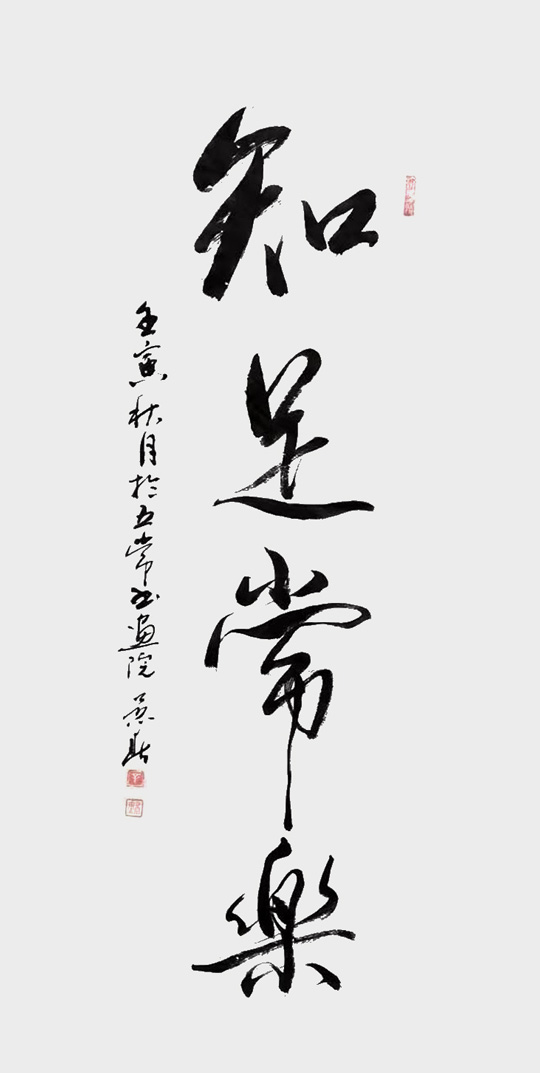 知足常樂
壬寅秋月於五常书畫院